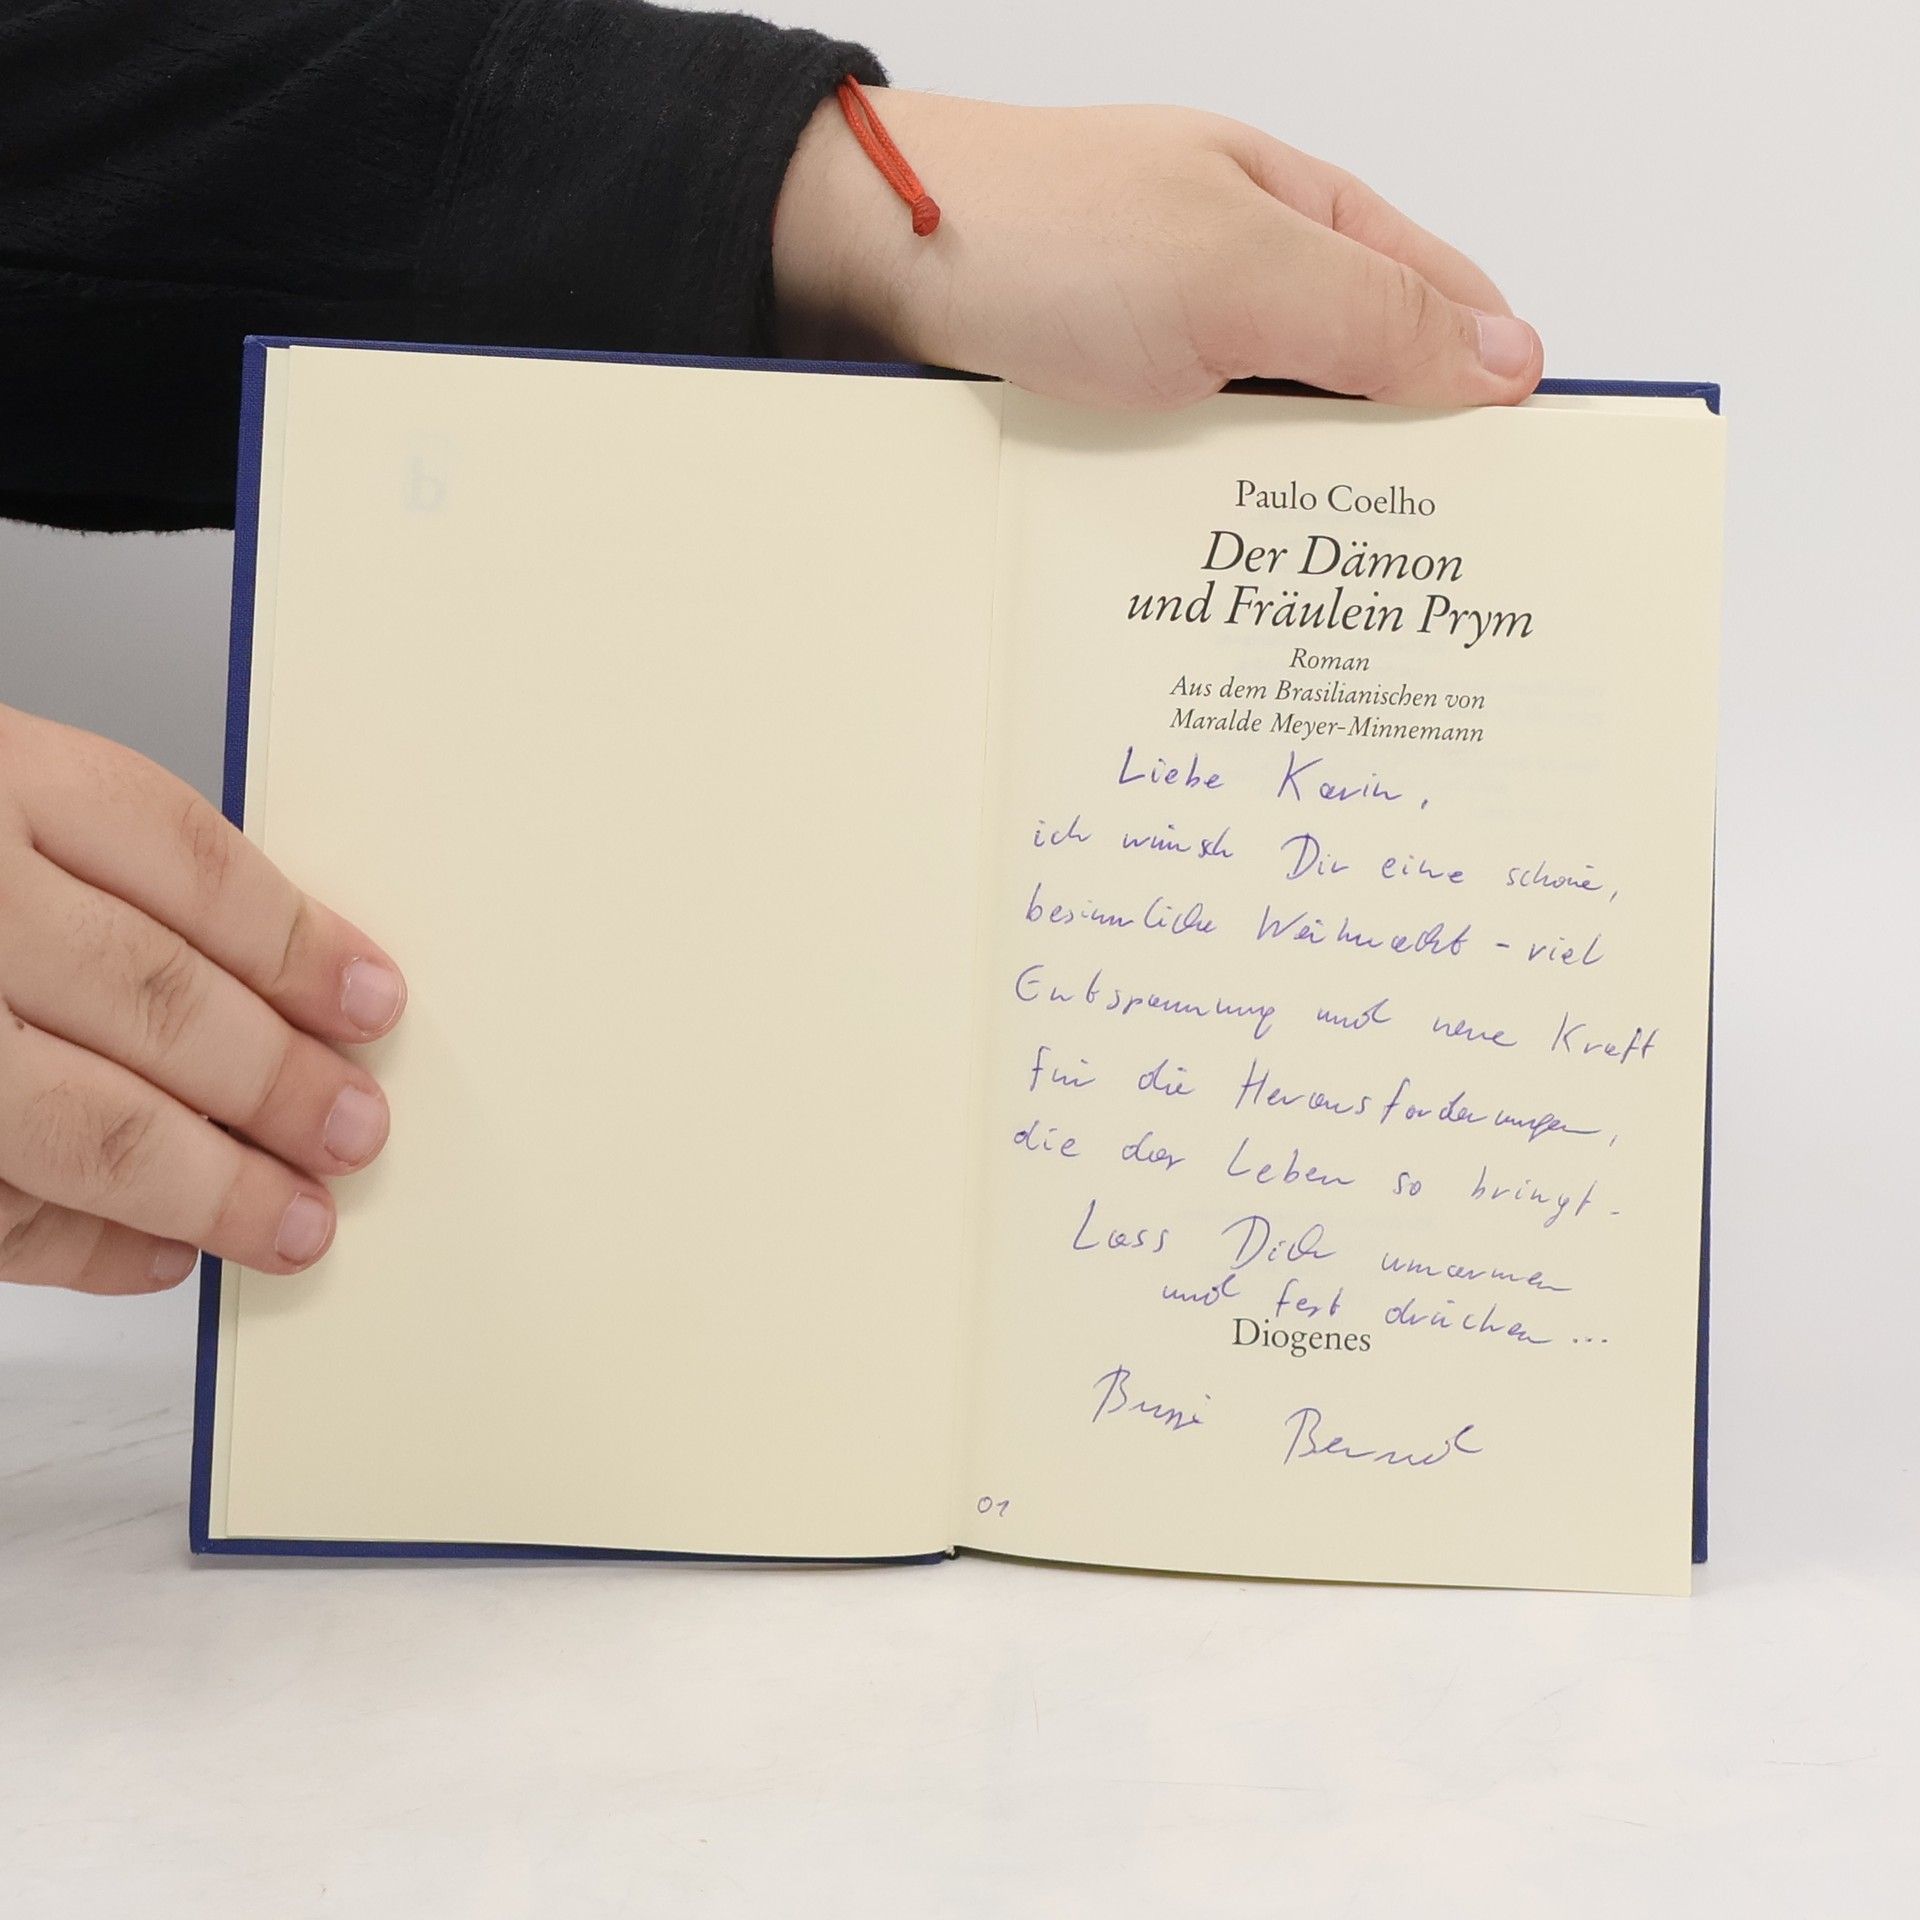 Paulo Coelho
Der Dämon
und Fräulein Prym
Roman
Aus dem Brasilianischen von
Maralde Meyer-Minnemann
Liebe Karin,
ich wünsch Dir eine schöne,
besinnliche Weihnacht - viel
Entspannung und neue Kraft
für die Herausforderungen,
die das Leben so bringt.
Lass Dich umarmen
und fest drücken ...
Diogenes
Bussi Bernd
01
d